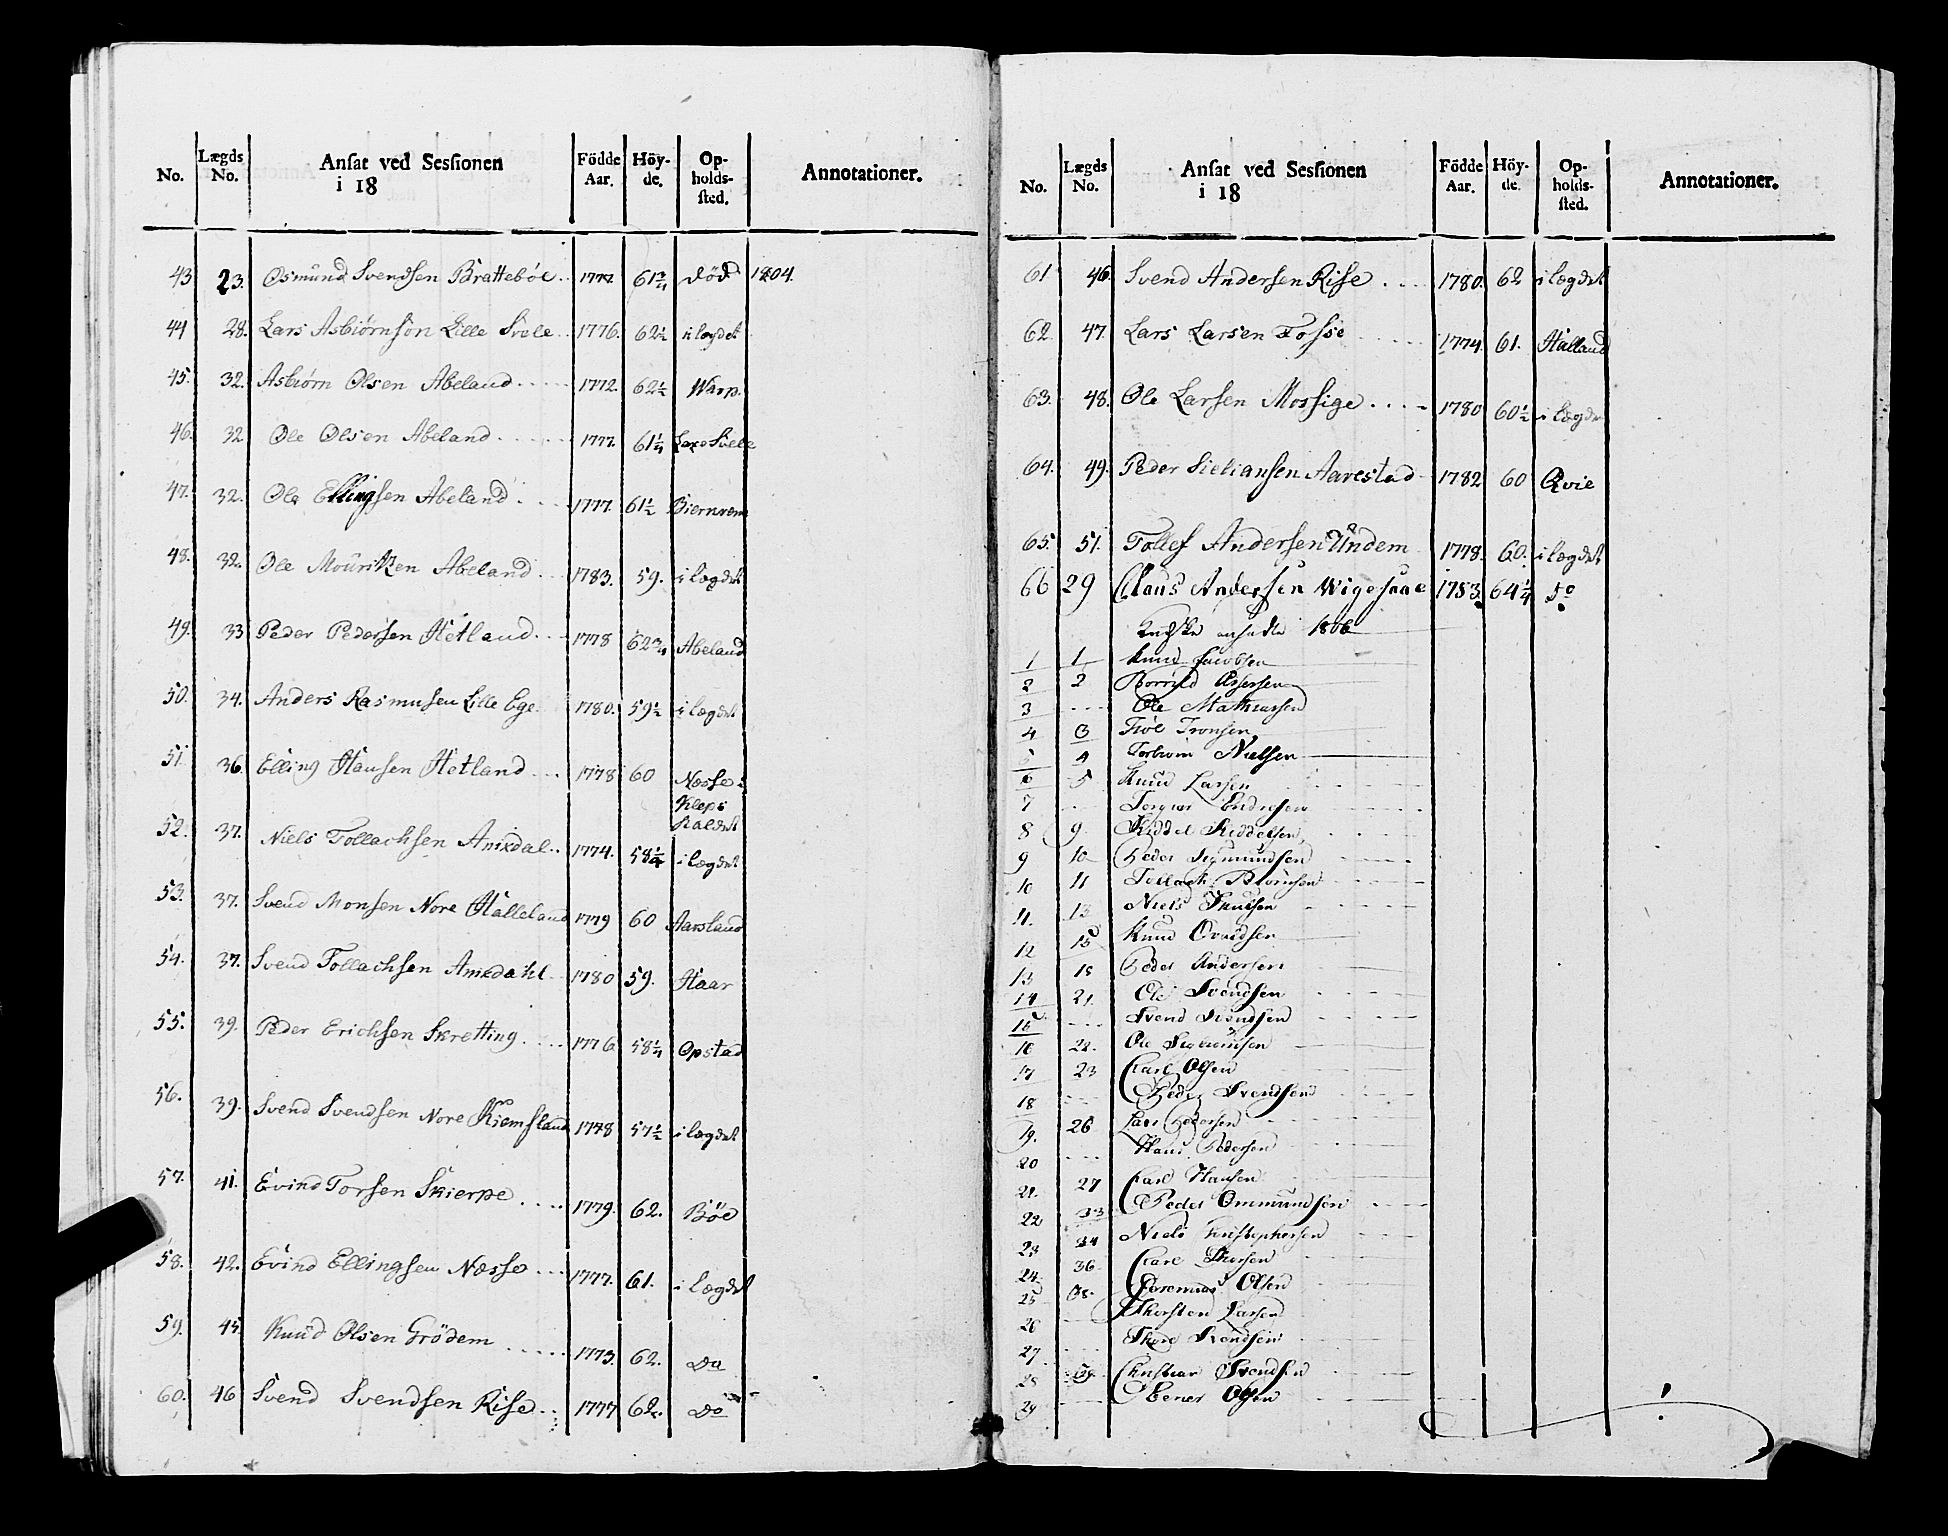 No. Lægds No. Ansat ved Sessionen i 18 Födde Aar. Höy-de. Op-holds-sted. Annotationer.
43 23. Osmund Svendsen Bratteböe 1777. 61 3/4 död 1804.
44 28. Lars Asbiörnsön Lille Svele 1776. 62 1/2 i lægdet
45. 32. Asbiörn Olsen Abeland 1772. 62 1/2 Warp.
46. 32 Ole Olsen Abeland 1777. 61 1/4
47. 32. Ole Ellingsen Abeland 1777. 61 1/2
48. 32. Ole Mouritzen Abeland 1783. 59. i lægdet
49. 33 Peder Pedersen Hetland 1778 62 3/4 Abeland
50. 34. Anders Rasmusen Lille Ege 1780. 59 1/2 i lægdet
51 36. Elling Hansen Hetland 1778 60 Næsse i
Kleps
Kaldet
52. 37. Niels Tollachsen Amdal 1774. 58 1/4 i lægdet
53. 37. Svend Monsen Nore Halleland 1779 60 Aarsland
54. 37. Svend Tollachsen Amdahl 1780 59. Haar
55. 39. Peder Erichsen Skretting 1776 58 1/4 Opstad
56. 39. Svend Svendsen Nore Kiemsland 1778 57 1/2 i lægdet
57. 41. Evind Torsen Skierpe 1779. 62. Böe
58. 42. Evind Ellingsen Næsse 1777. 61. i lægdet
59. 45. Knud Olsen Grödem 1773. 62. Do
60. 46 Svend Svendsen Rise 1777 62. Do
No. Lægds No. Ansat ved Sessionen i 18 Födde Aar. Höy-de. Op-holds-sted. Annotationer.
61 46. Svend Andersen Rise 1780. 62 i lægdet
62. 47. Lars Larsen Fosse 1774. 61. Halland
63. 48. Ole Larsen Mossige 1780 60 1/2 i lægdet
64. 49. Peder Sieliansen Aarestad 1782 60 Qvie
65. 51. Tollef Andersen Undem 1778. 60. i lægdet
66 29 Claus Andersen Wigesaae 1783. 64 1/4 Do
1806
1 1 Knud Jacobsen
2 2 Assersen
3 Ole Mathiassen
4 3 Tronsen
5 4 Nielsen
6 5 Knud Larsen
7 Endresen
8 9. Kiddel Kiddelsen
9 10 Peder Sigmundsen
10 11 Tollach Biörnsen
11. 13 Niels
12 15 Knud
13 18 Peder Andersen
14 21. Ole Svendsen
15 Svend Svendsen
16 22. Ole
17 23 Carl Olsen
18 Peder Svendsen
19. 26 Lars Pedersen
20 Hans Pedersen
21. 27 Carl Hansen
22 33 Peder Ommundsen
23 34 Niels Christophersen
24. 36 Carl Thorsen
25 38. Olsen
26 Thorsten Larsen
27 Svendsen
28 39 Christian Svendsen
29 Olsen